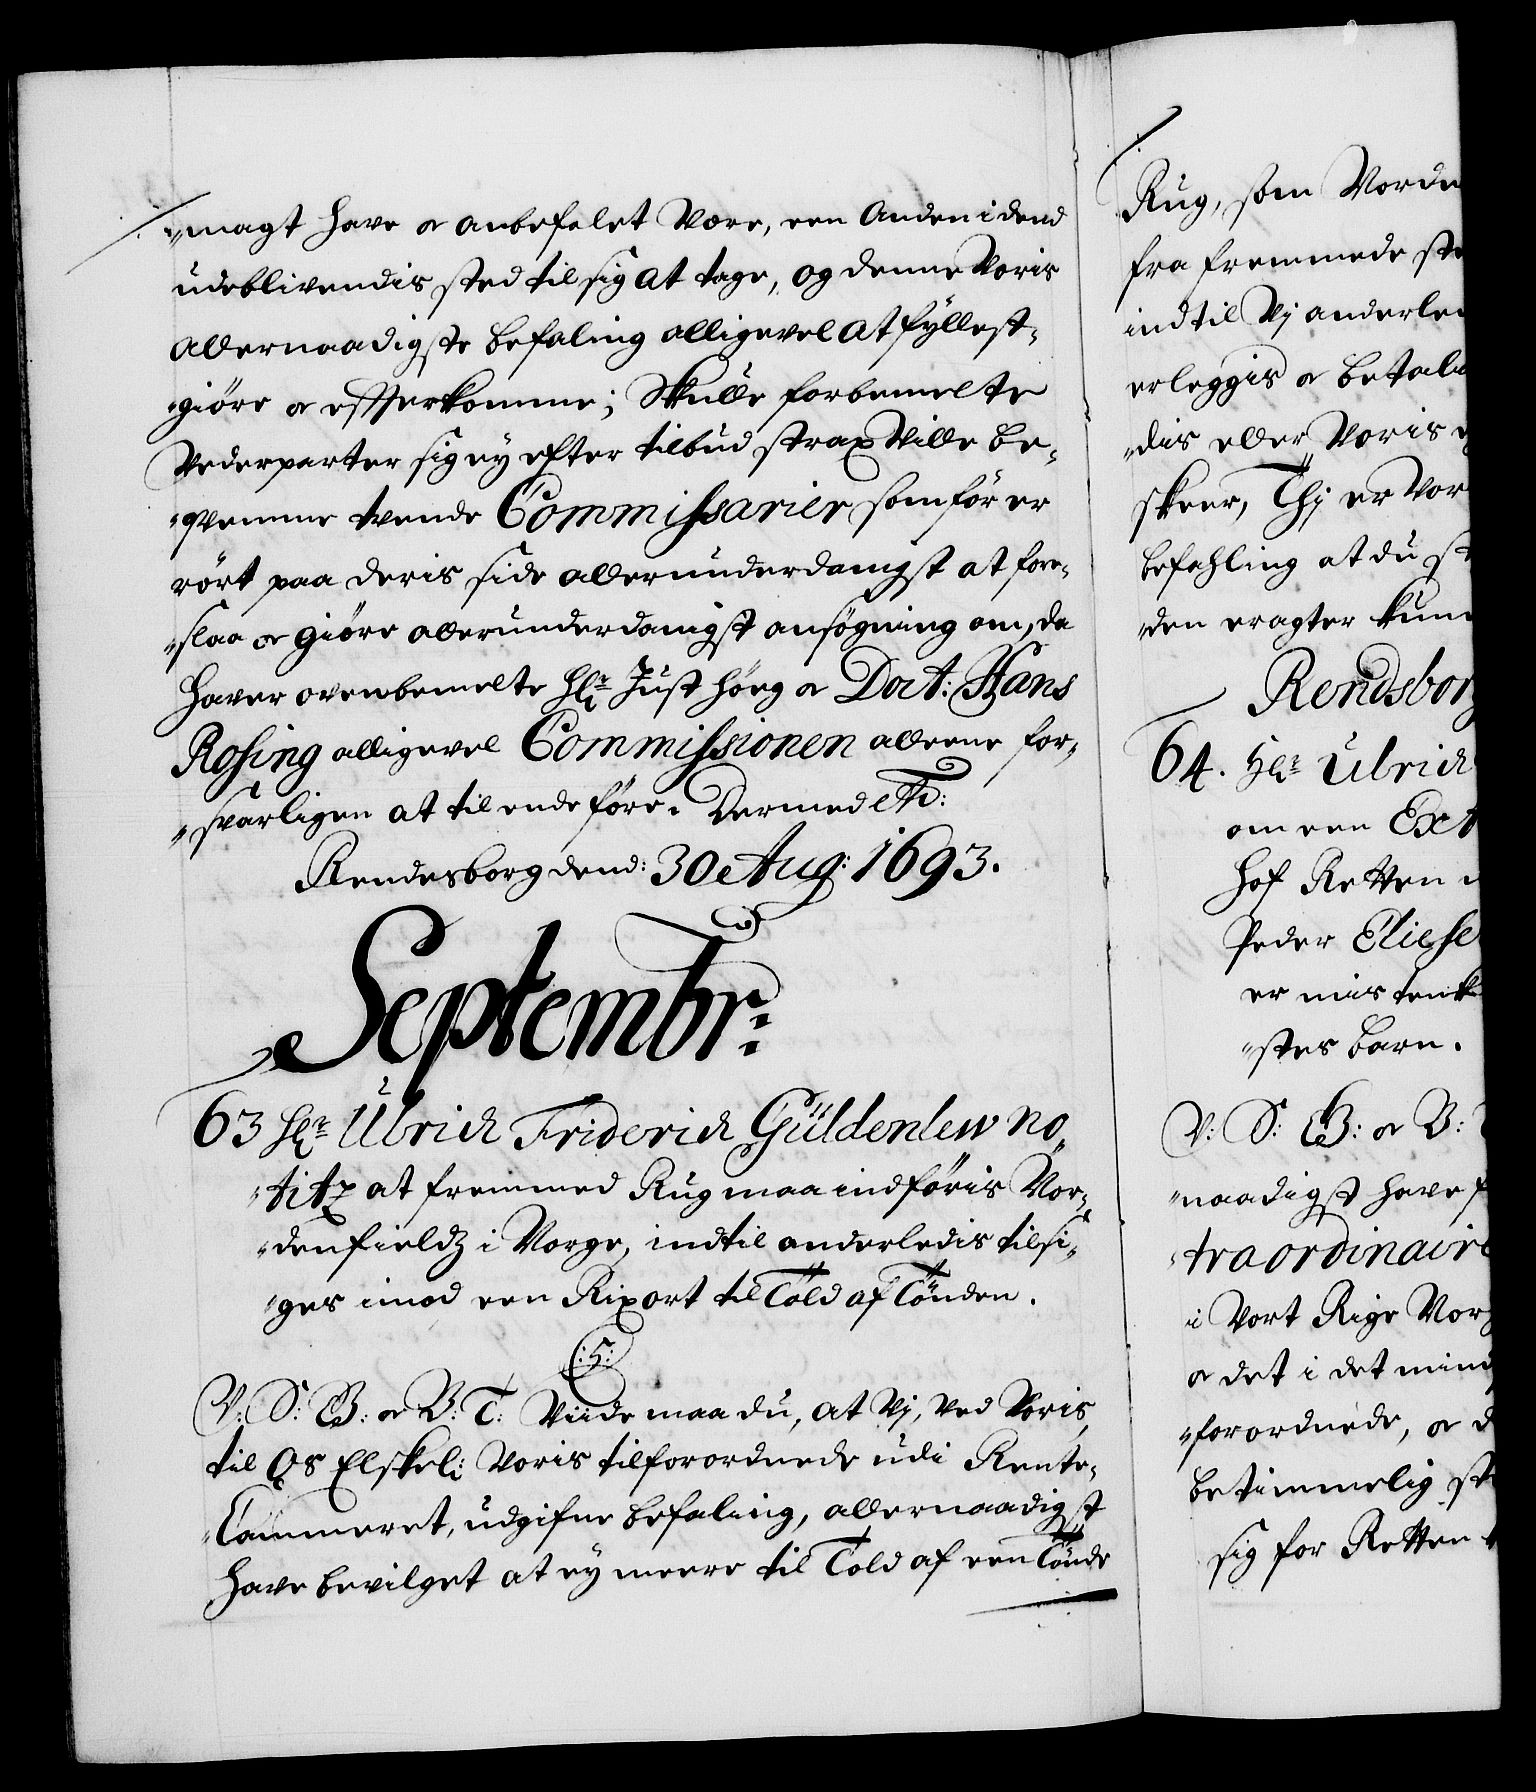 magt have og anbefalet Være, een Anden i dend
udeblivendis sted til sig at tage, og denne Voris
allernaadigste befaling alligevel at fyllest-
giöre og effterkomme; Skulle forbemelte
Vederparter sig ey efter tilbud strax Ville be-
qvemme tvende Commissarier som för er
rört paa deris side allerunderdanigst at fore-
slaa og giöre allerunderdanigst ansögning om, da
haver ovenbemelte Hr: Just Höeg og Doct: Hans
Rosing alligevel Commissionen alleene for-
svarligen at til ende före. Dermed etc:
Rendesborg dend: 30 Aug: 1693.
Septembr:
63 Hr: Ulrich Friderich Güldenlew no-
titz at fremmed Rug maa indföris Nor-
denfieldz i Norge, indtil anderledis tilsi-
ges imod een Rixort til Told af Tönden.
C:5:
V: S: G: og V: T: Viide maa du, at Vj, ved Voris
til Os Elskel: Voris tilforordnede udi Rente-
Cammeret, udgifne befaling, allernaadigst
have bevilget at ey meere til Told af een Tönde
Rug, som Norde
fra fremmede ste
indtil Vj anderle
erleggis og betal
dis eller Voris
skeer, Thj er Vor
befahling at du
den eragter kun
Rendsborg
64. Hr: Ulrich
om een Ext
Hof Retten
Peder Eliese
er mistenk
stes barn.
V: S: G: og V:
naadigst have f
traordinaire
i Vort Rige Nor
og det i det mind
forordnede, og d
betimmelig st
sig for Retten